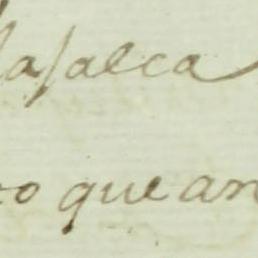 la salca
to que an